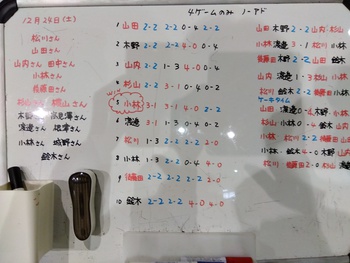 ４ゲームのみ ノーアド
12月24日(土)
松川さん
山田さん
山内さん 田中さん
小林さん
後藤田さん
杉山さん
渡邉さん
小林さん
鈴木さん
1 山田 2-2 2-2 0-4 2-2
2 木野 2-2 2-2 4-0 0-4
3 山内 2-2 1-3 4-0 0-4
4 杉山 2-2 3-1 0-4 2-2
5 小林 3-1 3-1 4-0 2-2
6 渡邉 3-1 1-3 0-4 4-0
7 松川 1-3 2-2 2-2 2-0
8 小林 1-3 2-2 0-4 4-0
9 後藤田 2-2 2-2 2-2 2-0
10 鈴木 2-2 2-2 4-0 4-0
山田 木野 2-2 山内 杉山
小林 渡邉 3-1 松川 小林
後藤田 木野 2-2 山田 鈴木
山内 渡邉 1-3 杉山 小林
松川 小林 2-2 後藤田 鈴木
ケーキタイム
山田 渡邉 0-4 木野 小林
杉山 小林 0-4 鈴木 山内
小林 松川 2-2 後藤田 山田
小林 鈴木 4-0 木野 山内
松川 後藤田 2-0 杉山 渡邉